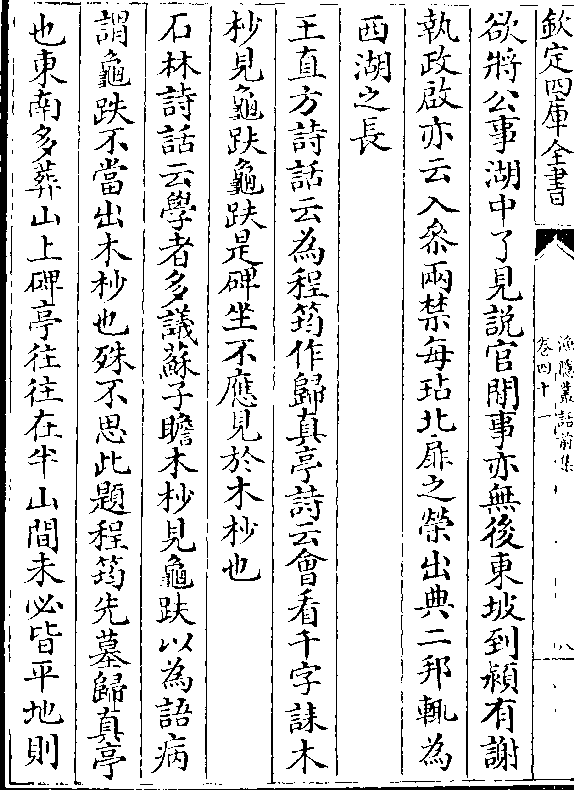 欽定四庫全書
漁隱叢話前集
卷四十一
八
欲將公事湖中了見說官閒事亦無後東坡到潁有謝
執政啟亦云入叅兩禁每玷北扉之榮出典二邦輒為
西湖之長
王直方詩話云為程筠作歸真亭詩云會看千字誄木
杪見龜趺龜趺是碑坐不應見於木杪也
石林詩話云學者多議蘇子瞻木杪見龜趺以為語病
謂龜趺不當出木杪也殊不思此題程筠先墓歸真亭
也東南多葬山上碑亭往往在半山間未必皆平地則